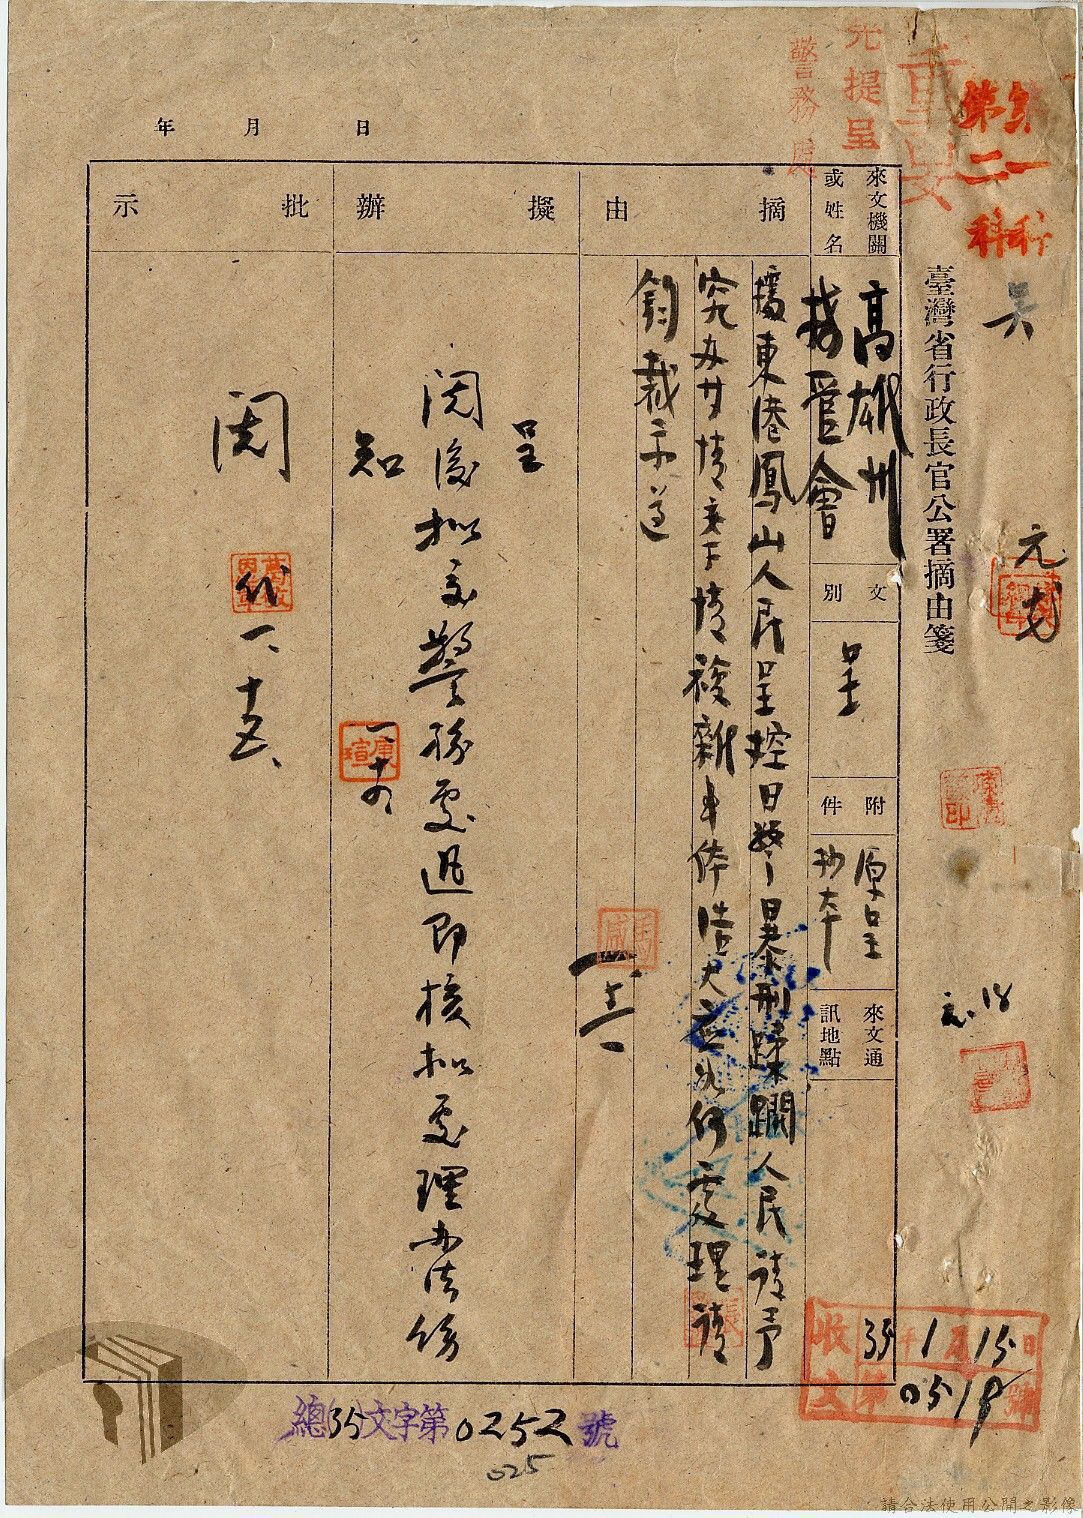 第一科
第二科
重要
先提呈
警務處
吴
臺灣省行政長官公署摘由箋
年 月 日
來文機關
或姓名
高雄州
接管會
文別
呈
附件
原呈
抄本
來文通
訊地點
摘由
據東港鳳山人民呈控日警暴刑蹂躪人民請予
究办廿情案下情複雜事体浩大應如何處理請
鈞裁示遵
擬辦
呈
閱後拟交警務處迅即核拟處理办法飭
知
一、十五
批示
閱
代
一、十五、
元.18
收文
35年1月15日
第0518號
總35文字第0252號
025
請合法使用公開之影像